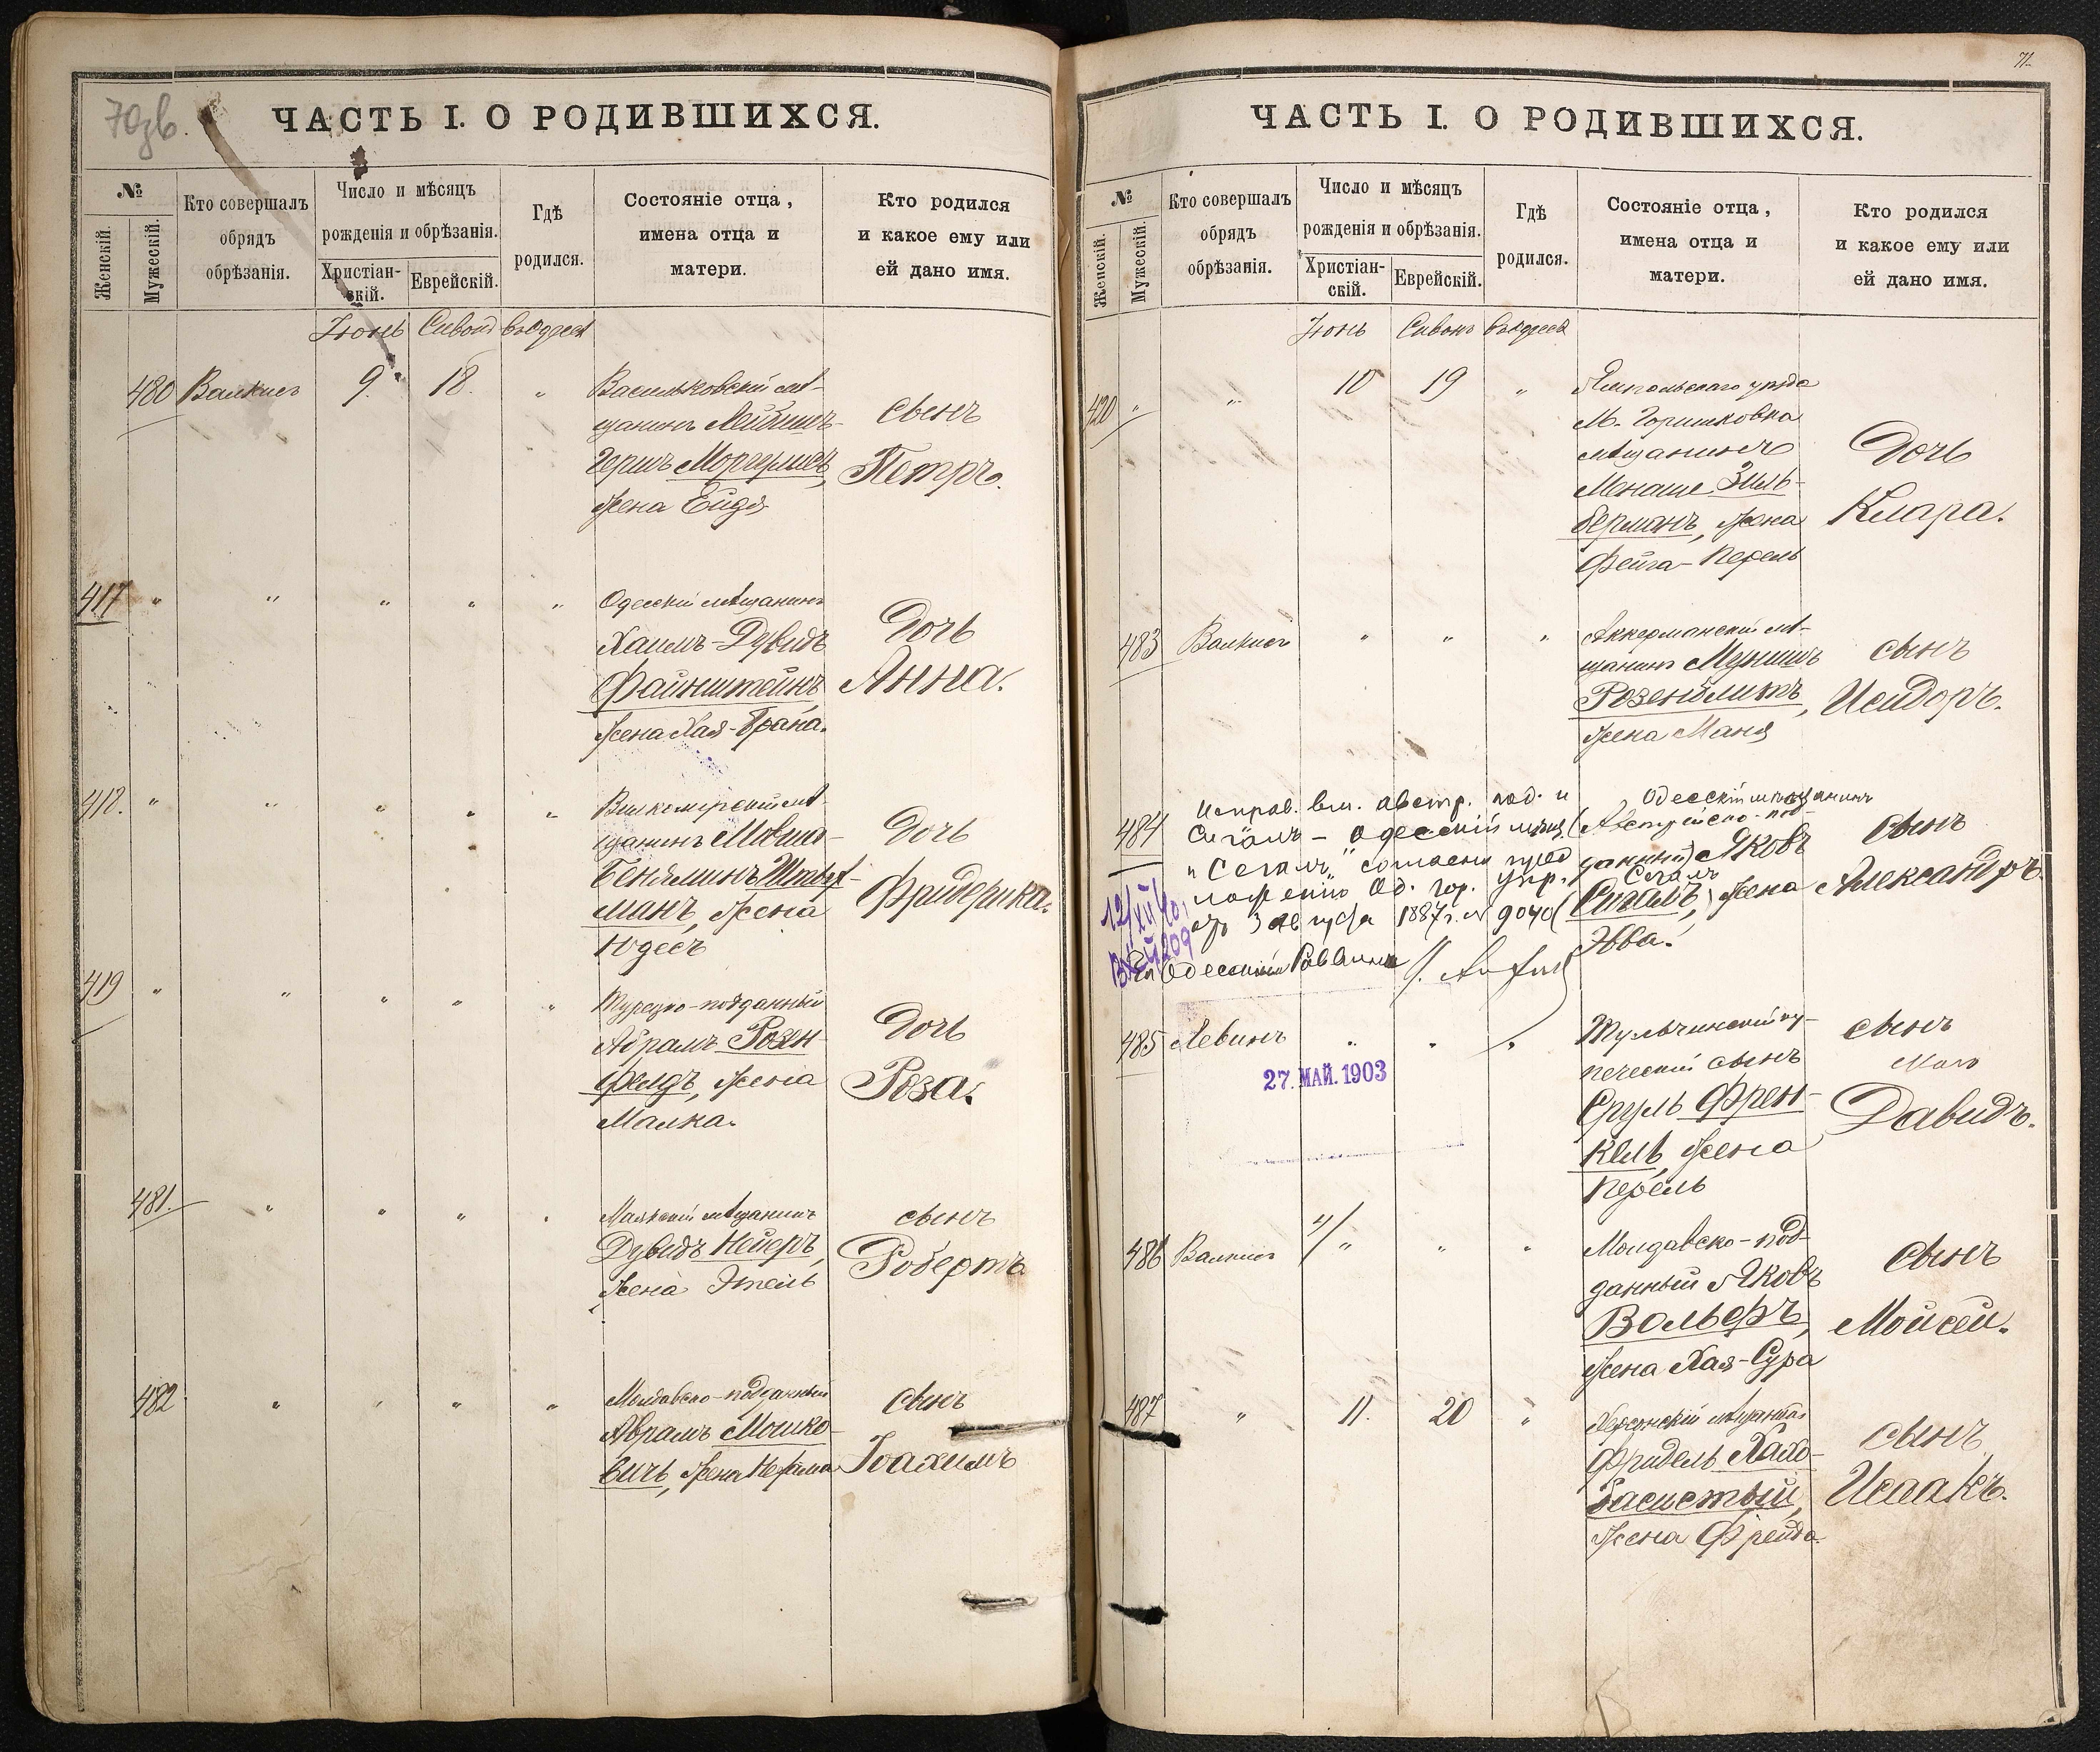 70зв.
ЧАСТЬ I. О РОДИВШИХСЯ.
№
Женскій.
Мужескій.
Кто совершалъ
обрядъ
обрѣзанія.
Число и мѣсяцъ
рожденія и обрѣзанія.
Христіан-
скій.
Еврейскій.
Гдѣ
родился.
Состояніе отца,
имена отца и
матери.
Кто родился
и какое ему или
ей дано имя.
Іюнь Сивонъ въ Одессѣ
480 Валкисъ 9. 18. "
Васильковскій мѣ-
щанинъ Лейбишъ-
Гершъ Моргулисъ,
жена Ейдя
сынъ
Петръ.
417 " " " " "
Одесскій мѣщанинъ
Хаимъ-Дувидъ
Файнштейнъ
жена Хая-Брана.
Дочь
Анна.
418. " " " " "
Вилкомирскій мѣ-
щанинъ Мовша-
Беньяминъ
манъ, жена
Юдесъ
Дочь
Фридерика.
419 " " " " "
Турецко-подданный
Абрамъ Розен-
фельдъ, жена
Малка.
Дочь
Роза.
481. " " " "
Маякскій мѣщанинъ
Дувидъ Нейеръ,
жена Этель
сынъ
Робертъ
482 " " " "
Молдавско-подданный
Абрамъ Мошко-
вичь, жена
сынъ
Іоахимъ
71.
ЧАСТЬ I. О РОДИВШИХСЯ.
№
Женскій.
Мужескій.
Кто совершалъ
обрядъ
обрѣзанія.
Число и мѣсяцъ
рожденія и обрѣзанія.
Христіан-
скій.
Еврейскій.
Гдѣ
родился.
Состояніе отца,
имена отца и
матери.
Кто родился
и какое ему или
ей дано имя.
Іюнь Сивонъ въ Одессѣ
420 " " 10 19 "
Ямпольскаго уѣзда
м. Горишковка
мѣщанинъ
Менаше Зиль-
берманъ, жена
Фейга-Перель
Дочь
Клара.
483 Валкисъ " " "
Аккерманскій мѣ-
щанинъ Мунишъ
Розенблитъ,
жена Маня
сынъ
Исидоръ.
484
Исправ. вм. австр. под. и
Сигалъ - одесскій мѣщ.
"Сегалъ" согласно пред
ложенію Од. гор. упр.
отъ 3 августа 1887 г. № 9040
Одесскій Раввинъ
12/XII 40
209
Одесскій мѣщанинъ
(Австрійско-под-
данный) Яковъ
Сегалъ
(Сигалъ,) жена
Эвва.
сынъ
Александръ.
485 Левинъ " " "
27. МАЙ. 1903
Тульчинскій ку-
печескій сынъ
Сруль Френ-
кель, жена
Перель
сынъ
Давидъ.
486 Валкисъ " " "
Молдавско-под-
данный Яковъ
Вольфъ,
жена Хая-Сура
сынъ
Мойсей.
487 " 11. 20 "
Херсонскій мѣщанинъ
Фридель
басистый,
жена Фрейда.
сынъ
Исаакъ.